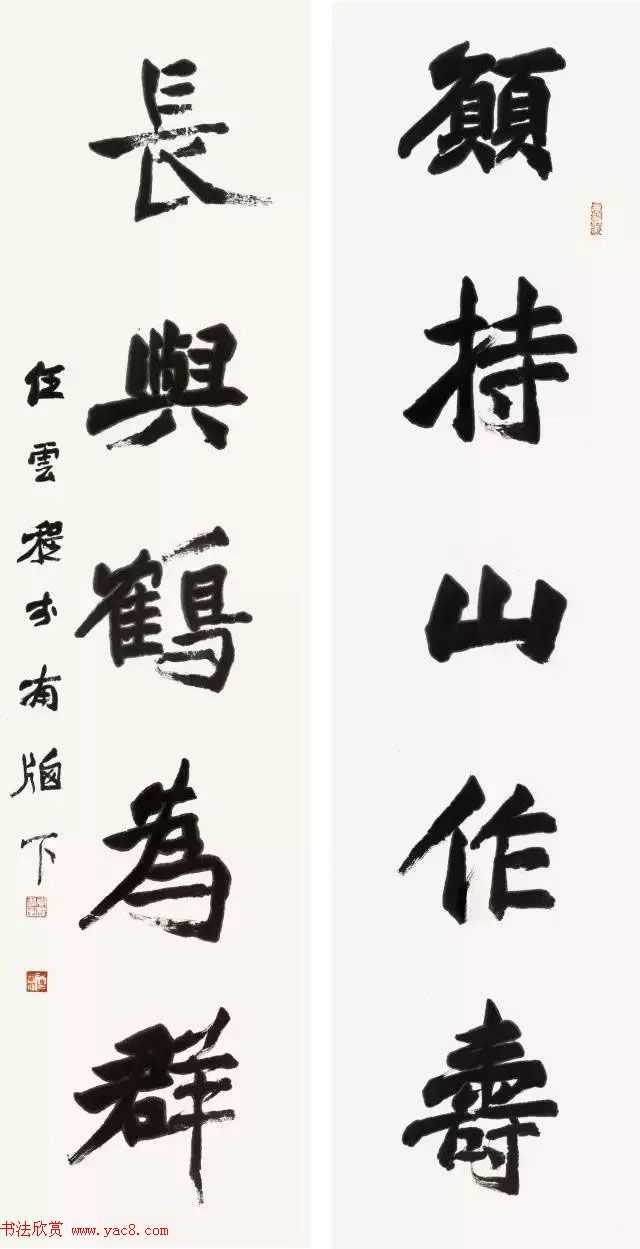 願持山作壽
長與鶴為群
任雲程書南牕下
书法欣赏 www.yac8.com